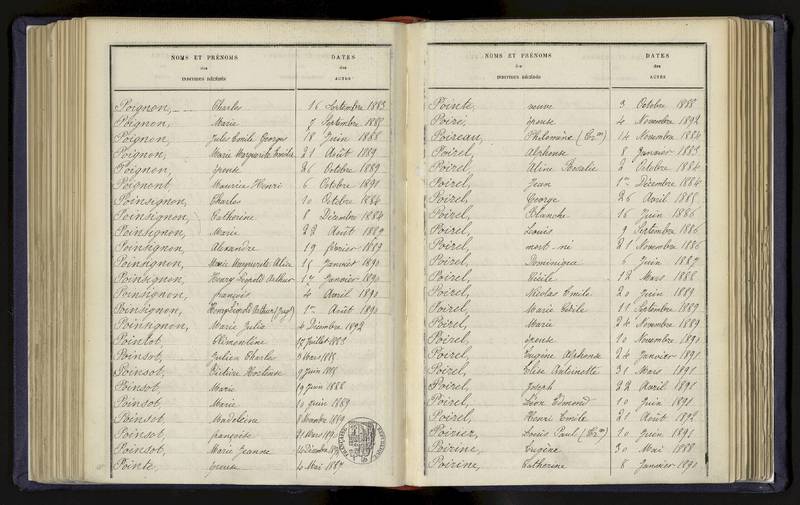 NOMS ET PRÉNOMS
des
INDIVIDUS DÉCÉDÉS
DATES
des
ACTES
Poignon, Charles 16 Septembre 1883
Poignon, Marie 7 Septembre 1888
Poignon, Jules Emile Georges 18 Juin 1888
Poignon, Marie Marguerite Emilie 21 Août 1889
Poignon, épouse 26 Octobre 1889
Poignont, Maurice Henri 6 Octobre 1891
Poinsignon, Charles 10 Octobre 1884
Poinsignon, Catherine 8 Décembre 1884
Poinsignon, Marie 22 Août 1889
Poinsignon, Alexandre 19 février 1889
Poinsignon, Marie Marguerite Alice 15 Janvier 1890
Poinsignon, Henry Léopold Arthur 17 Janvier 1890
Poinsignon, françois 4 Avril 1890
Poinsignon, Arthur 1er Août 1890
Poinsignon, Marie Julie 4 Décembre 1892
Poinsot, Clémentine 10 Juillet 1883
Poinsot, Julien Charles 3 Mars 1885
Poinsot, Hortense 9 Juin
Poinsot, Marie 19 Juin 1888
Poinsot, Marie 10 Juin 1889
Poinsot, Madeleine 8 Novembre 1889
Poinsot, françoise 21 Mars
Poinsot, Marie Jeanne Décembre
Pointe, épouse 4 Mai 1887
NOMS ET PRÉNOMS
des
INDIVIDUS DÉCÉDÉS
DATES
des
ACTES
Pointe, veuve 3 Octobre 1888
Poiré, épouse 4 Novembre 1892
Poireau, Philomène 14 Novembre 1884
Poirel, Alphonse 8 Janvier 1883
Poirel, Aline Rosalie 2 Octobre 1884
Poirel, Jean 1er Décembre 1884
Poirel, George 26 Avril 1885
Poirel, Blanche 16 Juin 1886
Poirel, Louis 9 Septembre 1886
Poirel, mort-né 21 Novembre 1886
Poirel, Dominique 6 Juin 1887
Poirel, Cécile 12 Mars 1888
Poirel, Nicolas Emile 20 Juin 1889
Poirel, Marie Cécile 11 Septembre 1889
Poirel, Marie 24 Novembre 1889
Poirel, épouse 10 Novembre 1890
Poirel, Eugène Alphonse 24 Janvier 1891
Poirel, Elise Antoinette 31 Mars 1891
Poirel, Joseph 22 Avril 1891
Poirel, Léon Edmond 10 Juin 1891
Poirel, Henri Emile 21 Août 1892
Poirier, Louis Paul 10 Juin 1891
Poirine, Eugène 30 Mai 1888
Poirine, Catherine 8 Janvier 1890